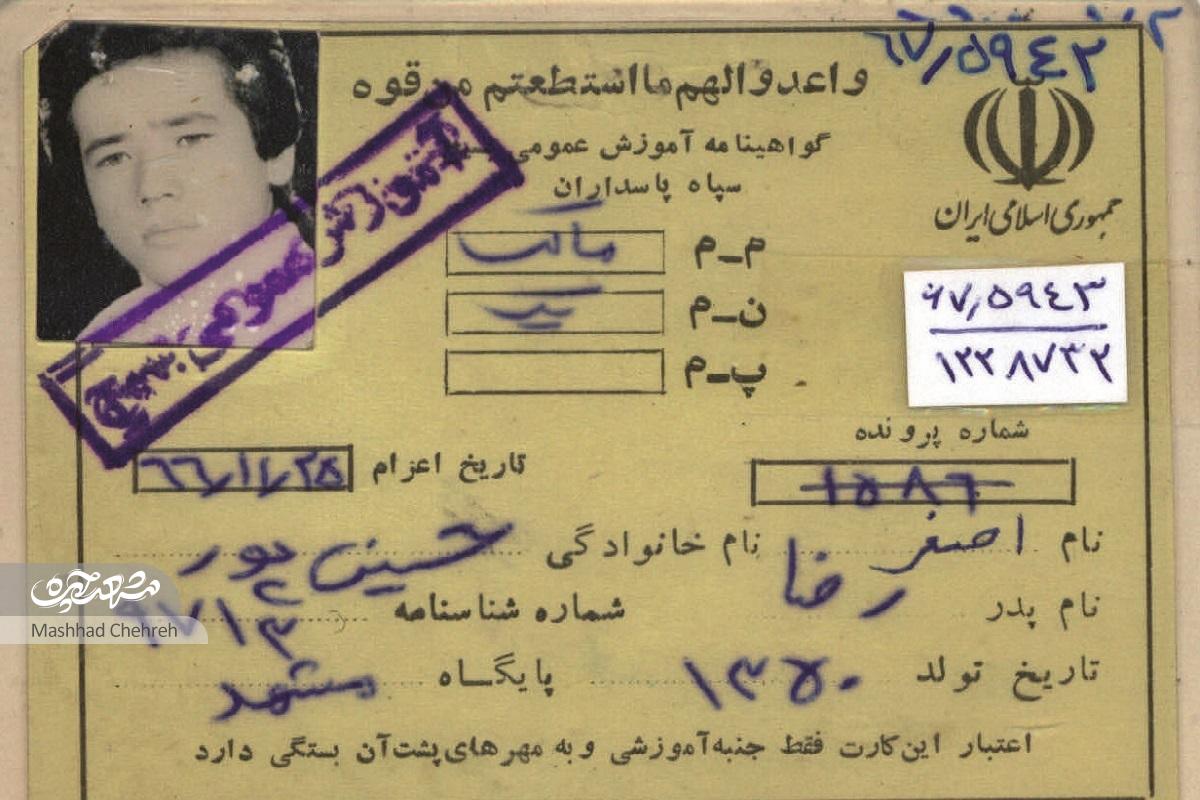 ۶۷/۵۹۴۳
واعدوالهم مااستطعتم من قوه
گواهینامه آموزش عمومی بسیج
سپاه پاسداران
جمهوری اسلامی ایران
آموزش عمومی بسیج
م-م
ن-م
پ-م
۶۷/۵۹۴۳
۱۲۲۸۷۳۲
شماره پرونده
۱۵۸۶
تاریخ اعزام ۶۶/۱۱/۲۵
نام اصغر نام خانوادگی حسین پور
نام پدر رضا شماره شناسنامه
تاریخ تولد ۱۳۵۰ پایگاه مشهد
اعتبار این کارت فقط جنبه آموزشی و به مهرهای پشت آن بستگی دارد
مشهد چهره
Mashhad Chehreh